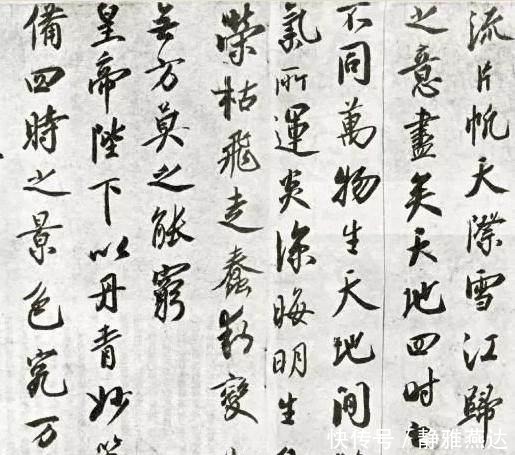 流片帆天際雪江歸
之意盡矣天地四时之
不同萬物生天地間
氣所運炎涼晦明生
榮枯飛走蠢動變
無方莫之能窮
皇帝陛下以丹青妙筆
備四時之景色究万
快传号/静雅燕达